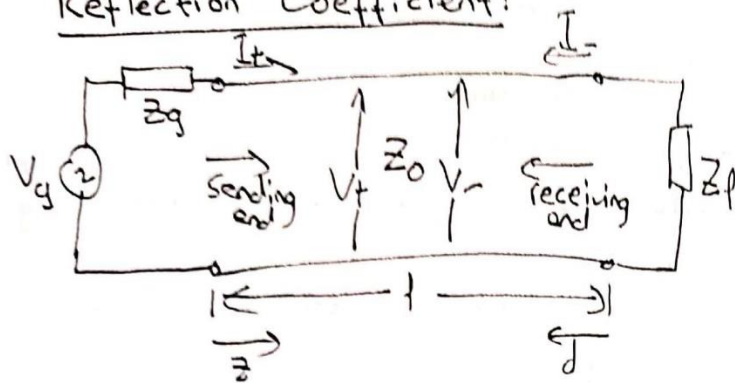 Reflection Coefficient:
I+ I-
Zg
Vg Sending end V+ Z0 V- receiving end Zl
l
z d